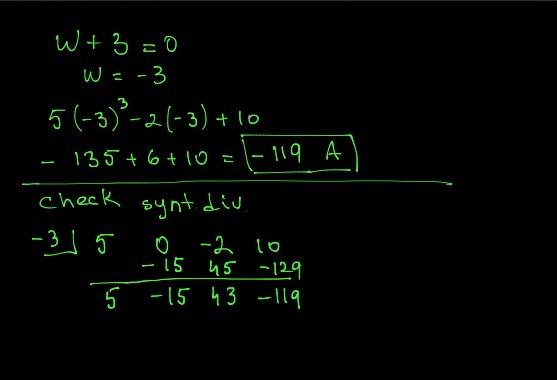 W + 3 = 0
W = -3
5(-3)³ - 2(-3) + 10
- 135 + 6 + 10 = -119 A
check synt. div.
-3 | 5 0 -2 10
-15 45 -129
5 -15 43 -119